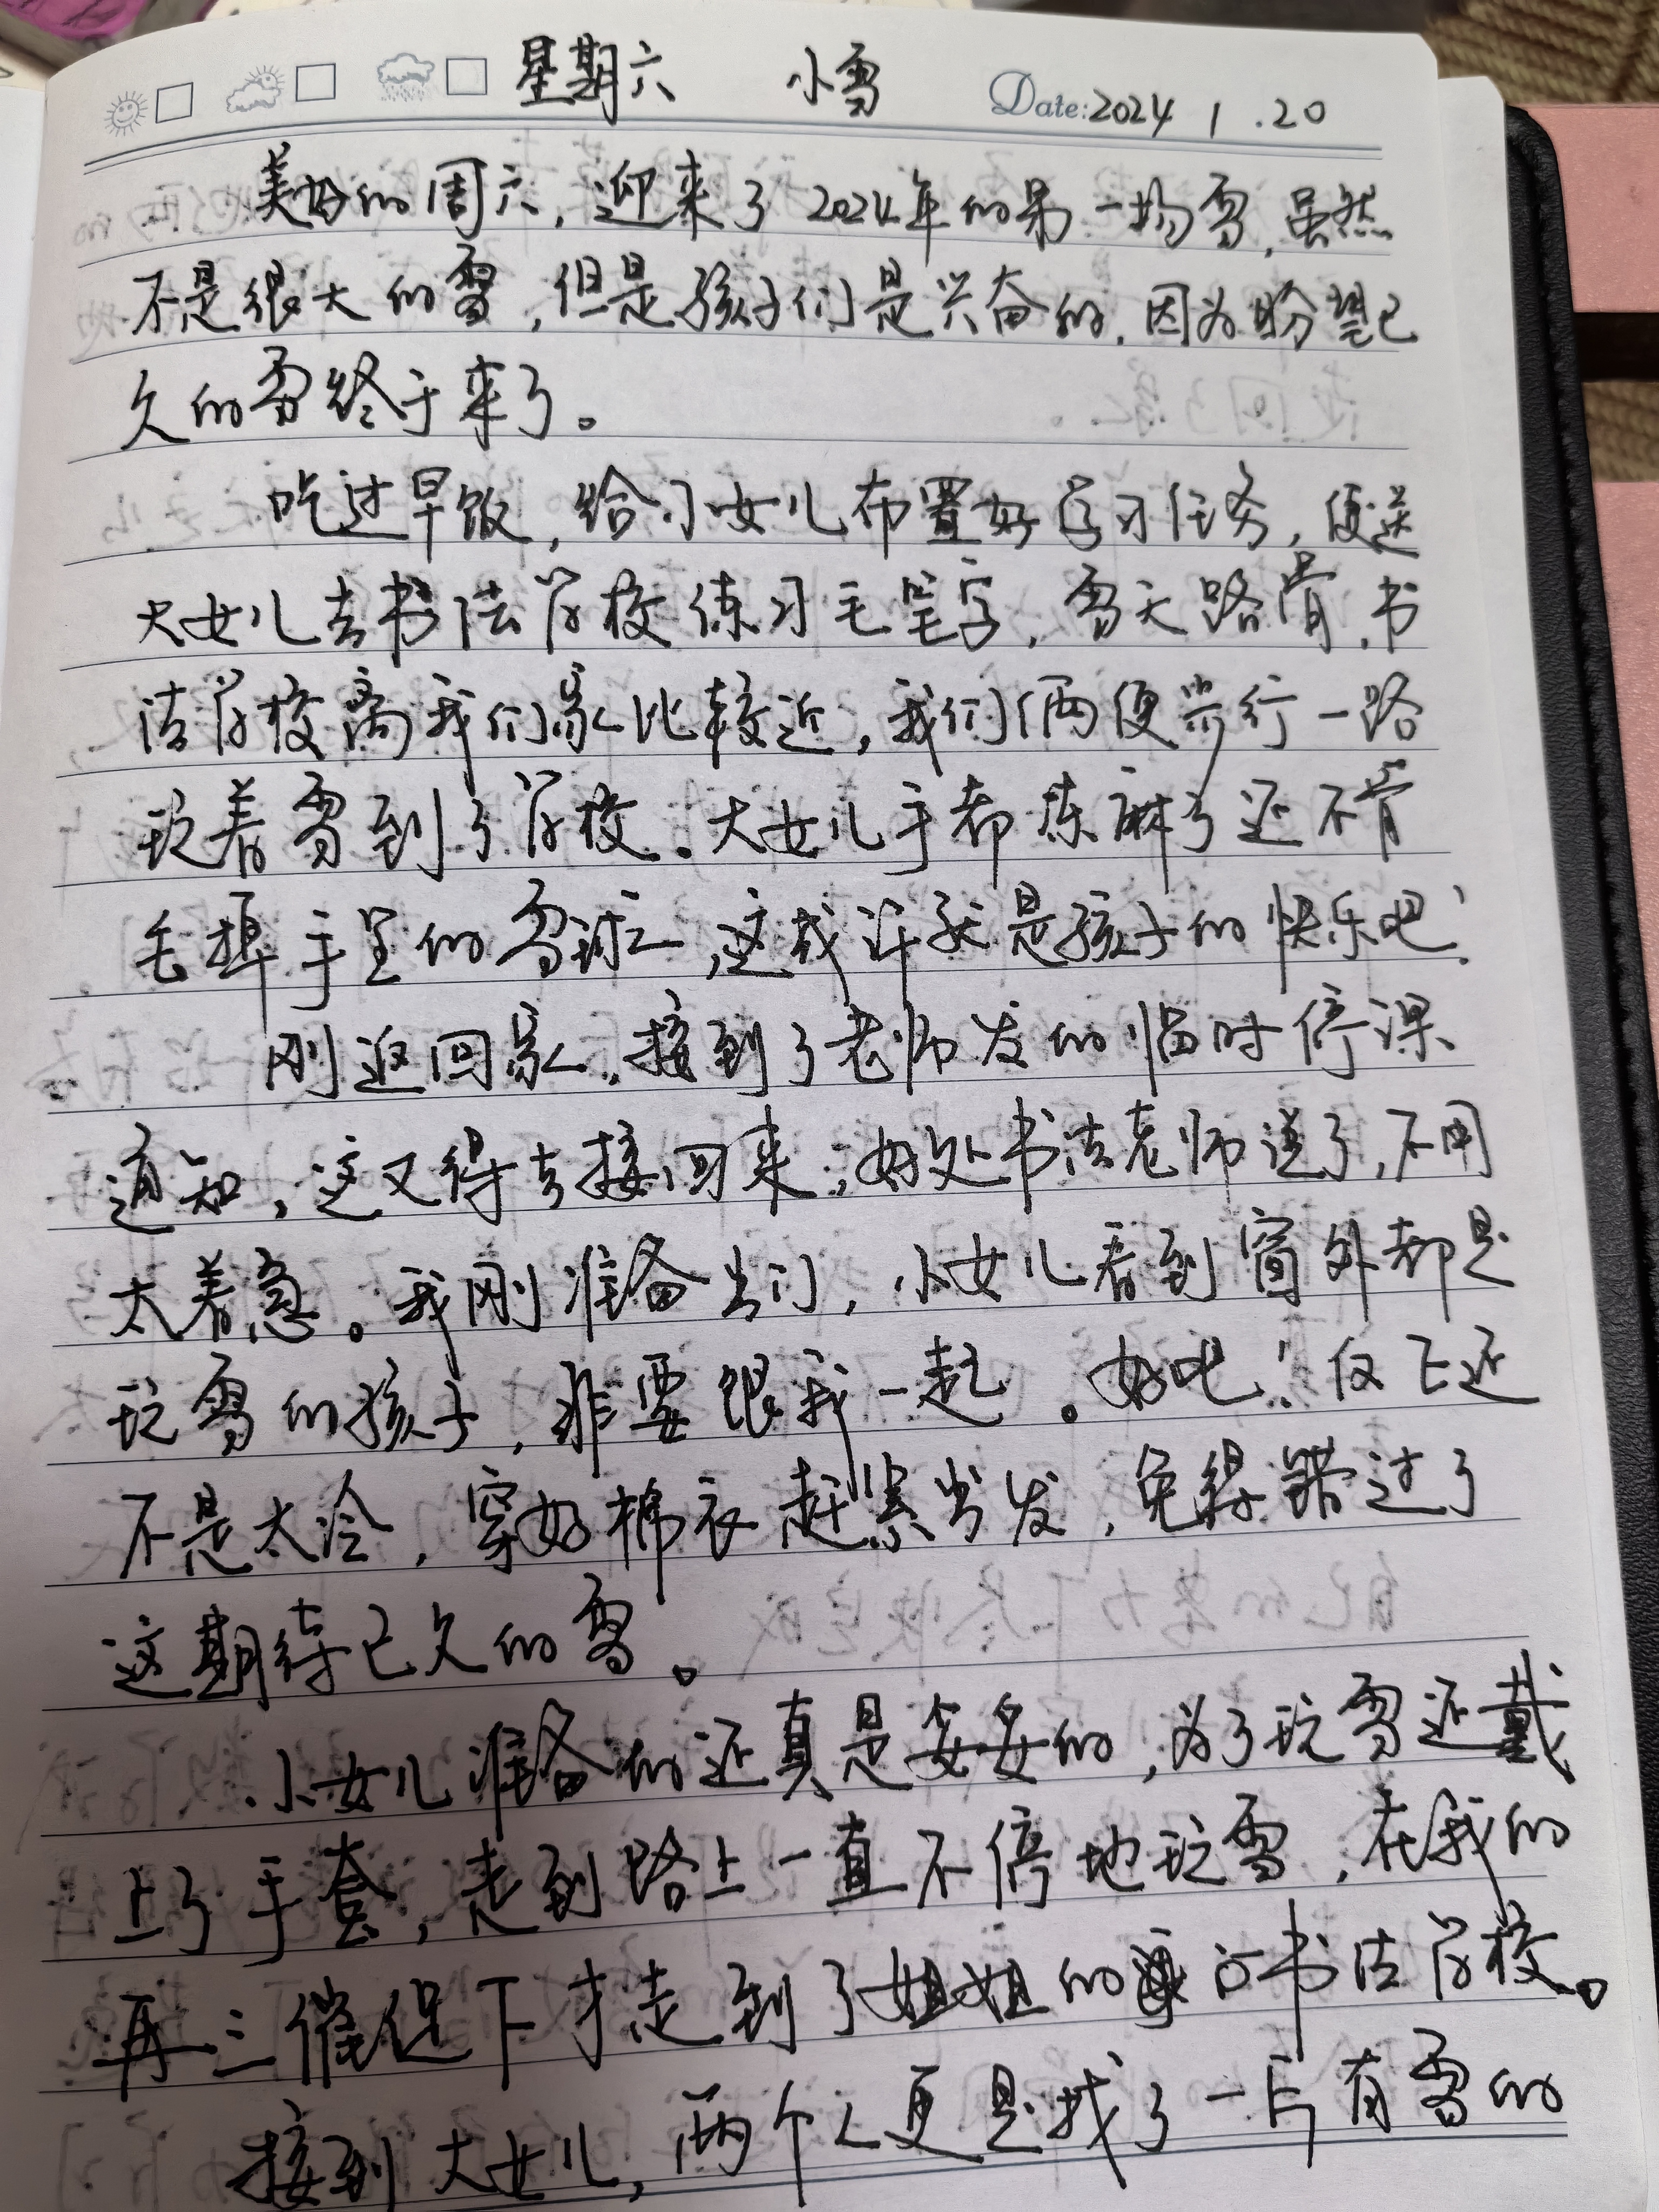 星期六 小雪 Date:2024 1.20
美好的周六,迎来了2024年的第一场雪,虽然
不是很大的雪,但是孩子们是兴奋的,因为盼望已
久的雪终于来了。
吃过早饭,给小女儿布置好学习任务,便送
大女儿去书法学校练习毛笔字,雪天路滑,书
法学校离我们家比较近,我们俩便步行一路
玩着雪到了学校。大女儿手都冻麻了还不肯
丢掉手里的雪球,这或许就是孩子的快乐吧!
刚返回家,接到了老师发的临时停课
通知,这又得去接回来,好处书法老师说了,不用
太着急。我刚准备出门,小女儿看到窗外都是
玩雪的孩子,非要跟我一起。好吧!反正还
不是太冷,穿好棉衣赶紧出发,免得错过了
这期待已久的雪。
小女儿准备的还真是妥妥的,为了玩雪还戴
上了手套,走到路上一直不停地玩雪,在我的
再三催促下才走到了姐姐的书法学校。
接到大女儿,两个人更是找了一片有雪的